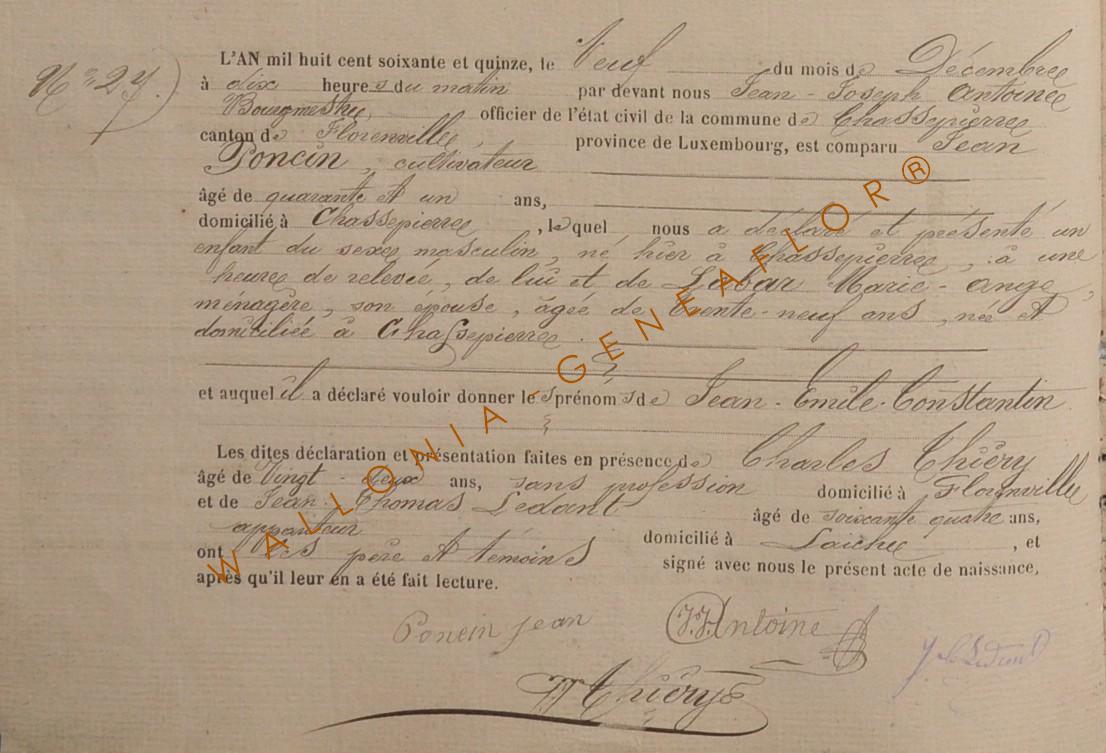 N° 27.
L'AN mil huit cent soixante et quinze, le Neuf du mois de Décembre
à dix heures du matin par devant nous Jean-Joseph Antoine
Bourgmestre, officier de l'état civil de la commune de Chassepierre
canton de Florenville, province de Luxembourg, est comparu Jean
Poncin, cultivateur
âgé de quarante et un ans,
domicilié à Chassepierre, lequel nous a déclaré et présenté un
enfant du sexe masculin, né hier à Chassepierre, à une
heure de relevée, de lui et de Labar Marie-Ange,
ménagère, son épouse, âgée de trente-neuf ans, née et
domiciliée à Chassepierre.
et auquel il a déclaré vouloir donner les prénoms de Jean-Emile-Constantin
Les dites déclaration et présentation faites en présence de Charles Thiéry
âgé de Vingt-deux ans, sans profession domicilié à Florenville
et de Jean-Thomas Ledant âgé de soixante quatre ans,
appariteur domicilié à Laiche, et
ont les père et témoins signé avec nous le présent acte de naissance,
après qu'il leur en a été fait lecture.
Poncin Jean J.J. Antoine
Thiéry
WALLONIA-GENEAFLOR®